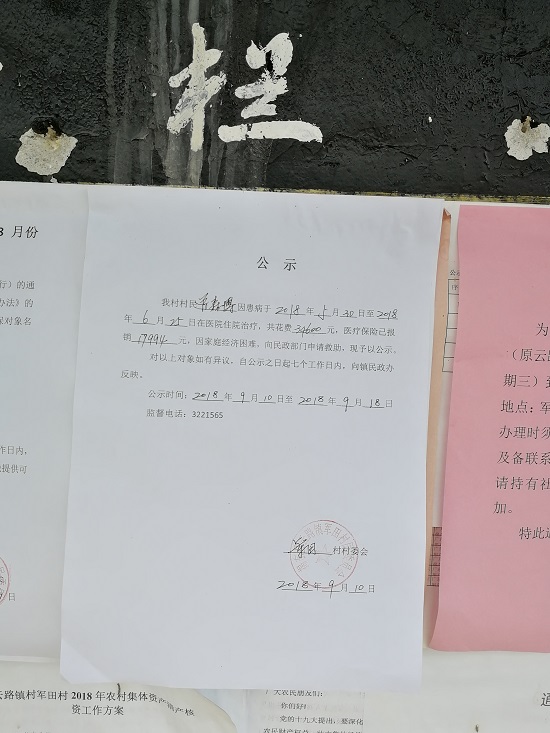 栏
公 示
我村村民 因患病于 2018 年 5 月 30 日至 2018
年 6 月 25 日在医院住院治疗，共花费 34600 元，医疗保险已报
销 17994 元，因家庭经济困难，向民政部门申请救助，现予以公示。
对以上对象如有异议，自公示之日起七个工作日内，向镇民政办
反映。
公示时间：2018 年 9 月 10 日至 2018 年 9 月 18 日
监督电话：3221565
军田 村村委会
2018 年 9 月 10 日
月份
行）的通
办法》的
保对象名
作日内，
提供可
日
云路镇村军田村 2018 年农村集体资产清产核
资工作方案
广大农民朋友们：
你们好！
党的十九大提出，要深化
公示
序
为
（原云
期三）到
地点：军
办理时须
及备联系
请持有社
加。
特此通